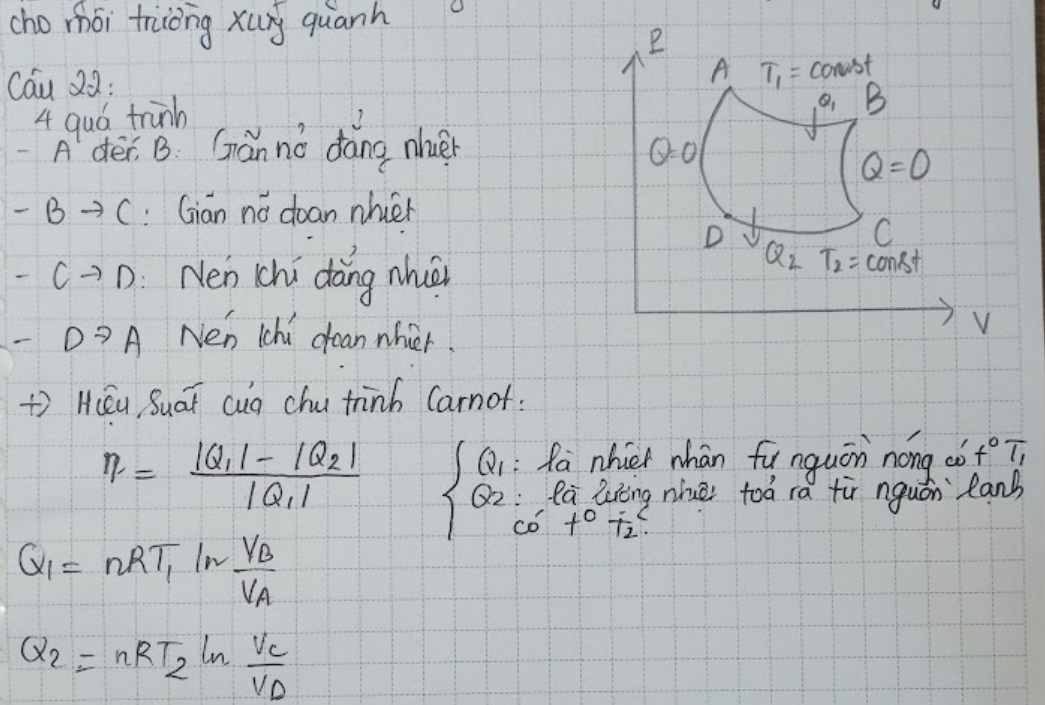 cho môi trường xung quanh
Câu 22:
4 quá trình
- A đến B: Giãn nở đẳng nhiệt
- B → C: Giãn nở đoạn nhiệt
- C → D: Nén khí đẳng nhiệt
- D → A Nén khí đoạn nhiệt.
P
A T₁ = const
Q₁ B
Q=0 Q=0
D Q₂ T₂ = const C
V
+) Hiệu suất của chu trình Carnot:
η = |Q₁| - |Q₂| / |Q₁|
{ Q₁: là nhiệt nhận từ nguồn nóng có t° T₁
Q₂: là lượng nhiệt toả ra từ nguồn lạnh
có t° T₂.
Q₁ = nRT₁ ln V_B / V_A
Q₂ = nRT₂ ln V_C / V_D